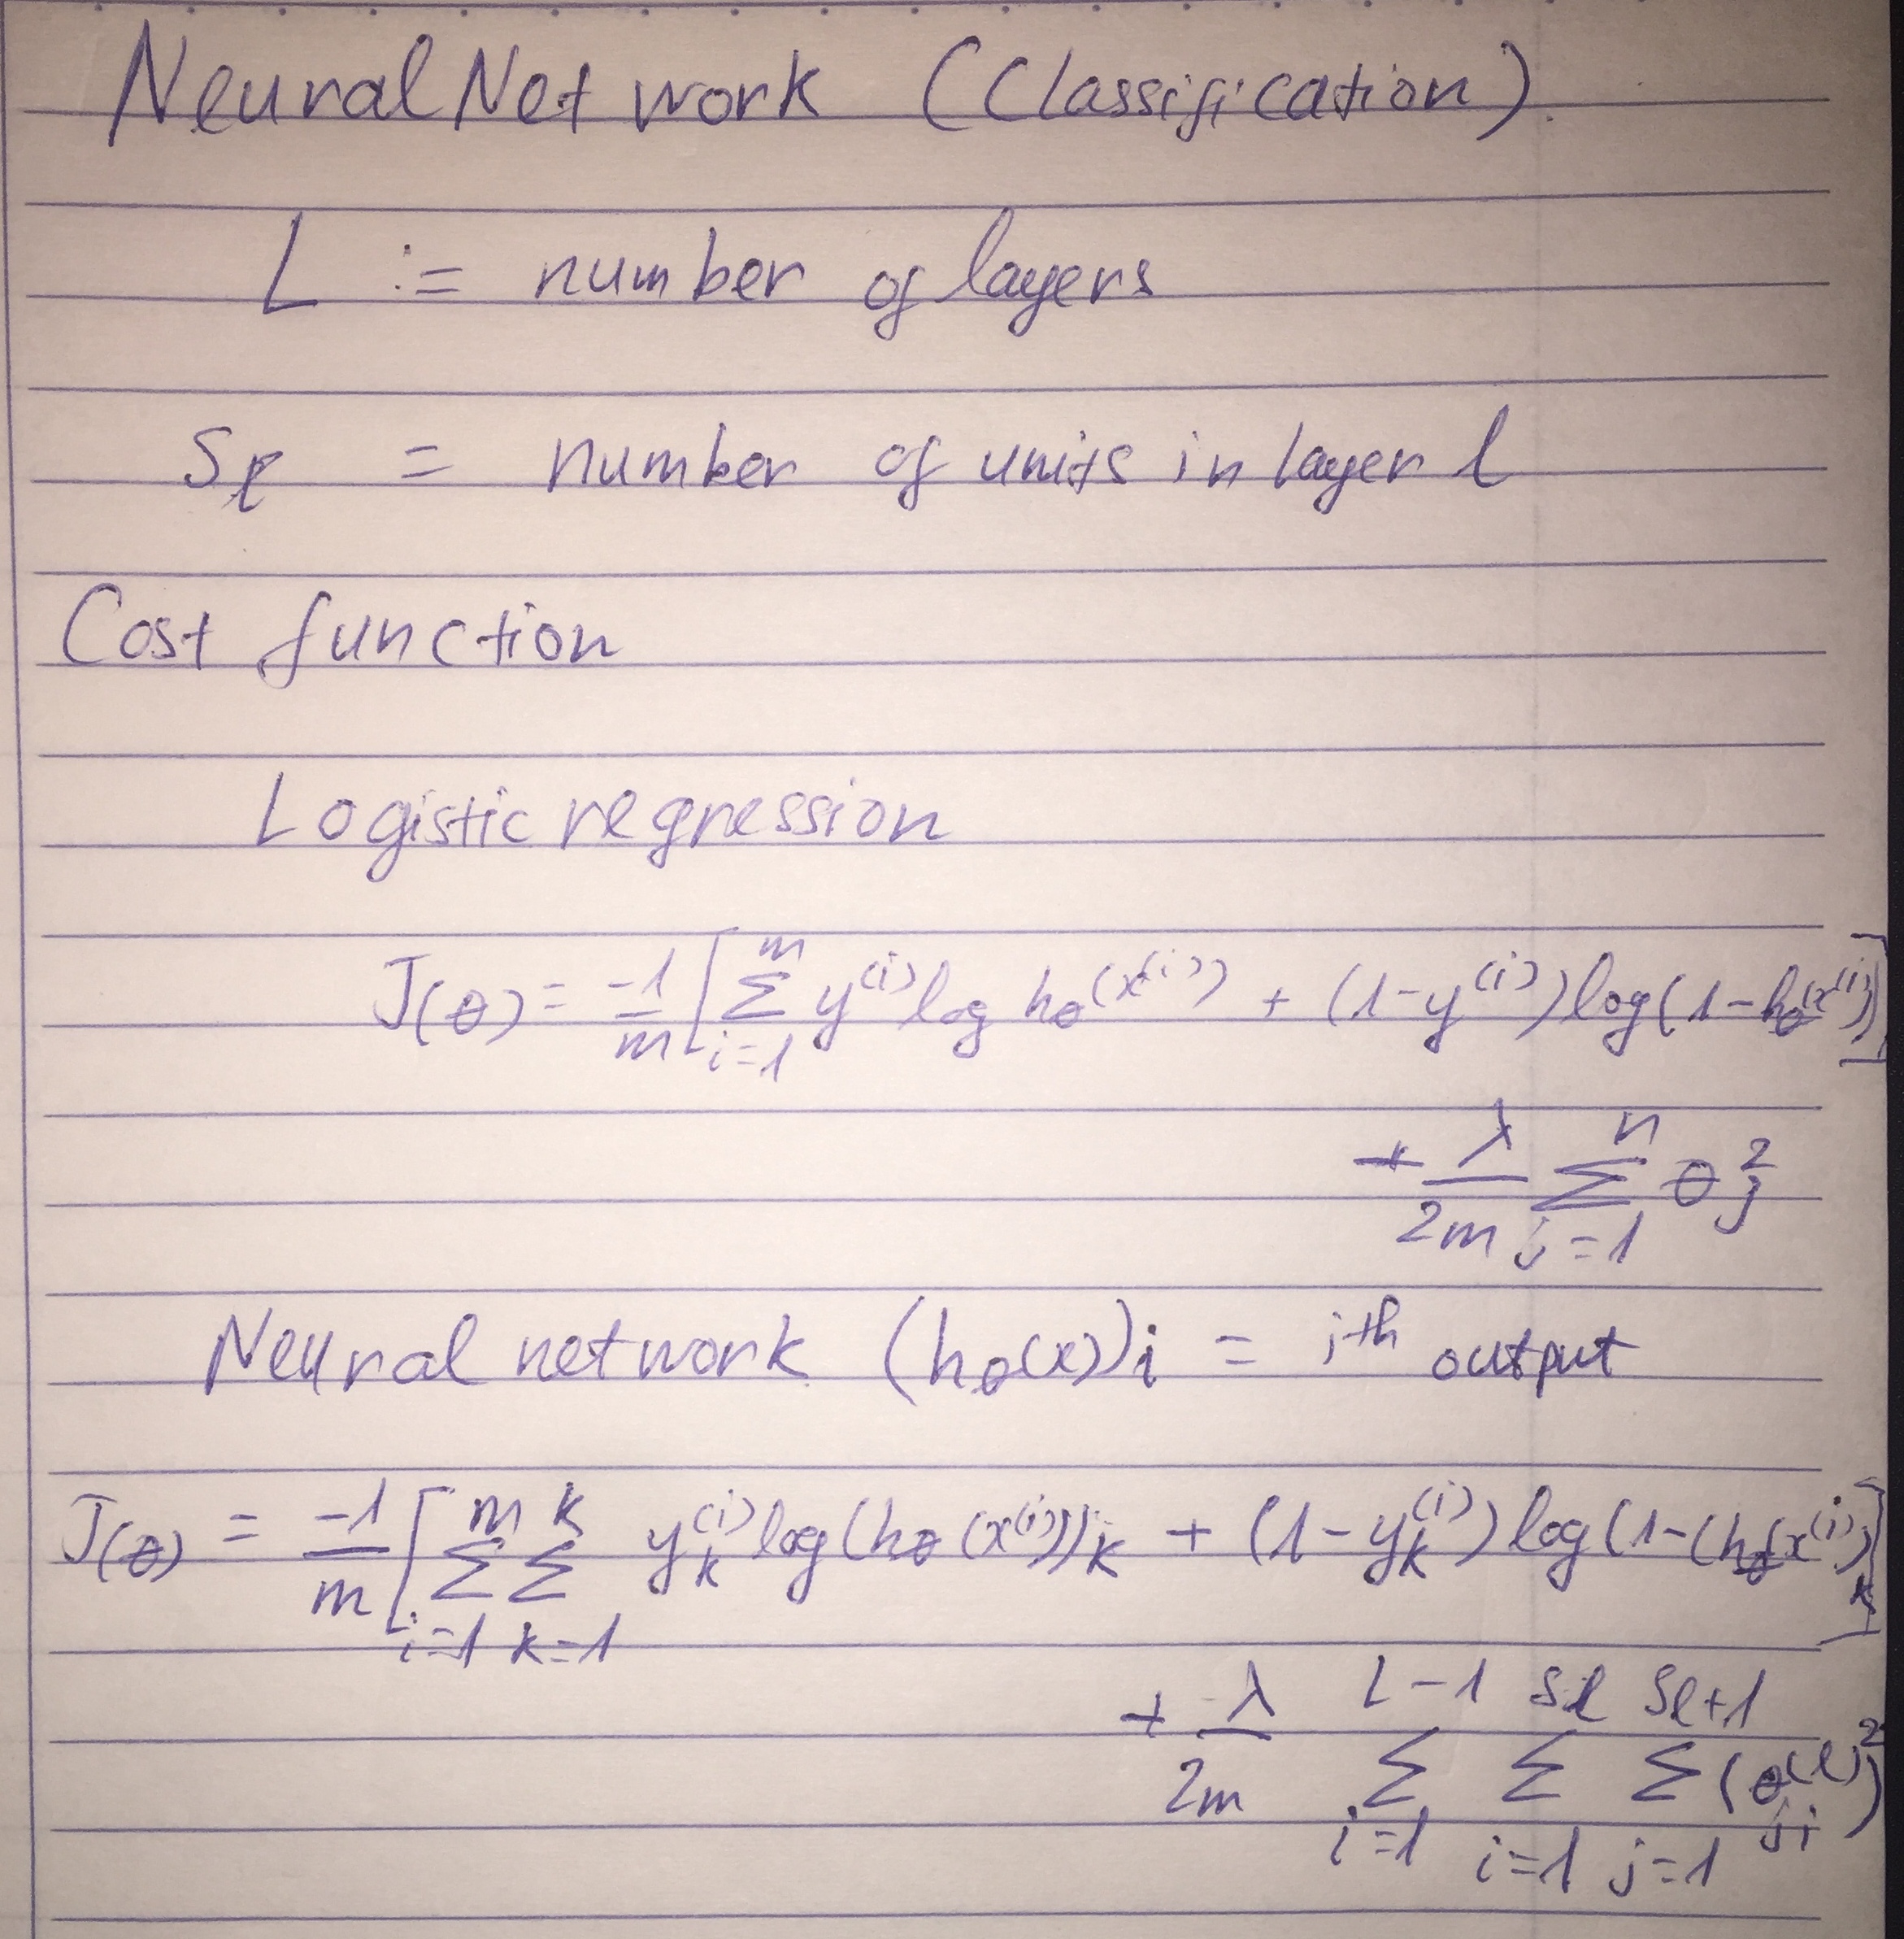 Neural Network (Classification).
L := number of layers
S_l = number of units in layer l
Cost function
Logistic regression
J(θ) = -1/m [ m Σ i=1 y^(i) log h_θ(x^(i)) + (1-y^(i)) log(1-h_θ(x^(i)) ]
+ λ/2m n Σ j=1 θ_j^2
Neural network (h_θ(x))i = i^th output
J(θ) = -1/m [ m Σ i=1 k Σ k=1 y_k^(i) log(h_θ(x^(i)))_k + (1-y_k^(i)) log(1-(h_θ(x^(i))_k ]
+ λ/2m L-1 Σ i=1 Sl Σ i=1 Sl+1 Σ j=1 (θ_ji^(l))^2